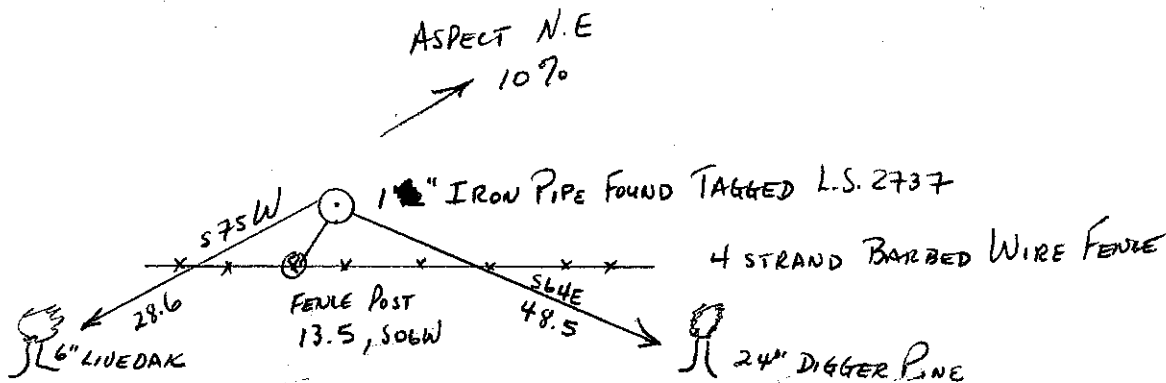 ASPECT N.E
10%
1" IRON PIPE FOUND TAGGED L.S. 2737
S75W
4 STRAND BARBED WIRE FENCE
28.6
FENCE POST
13.5, S06W
S64E
48.5
6" LIVEOAK
24" DIGGER PINE